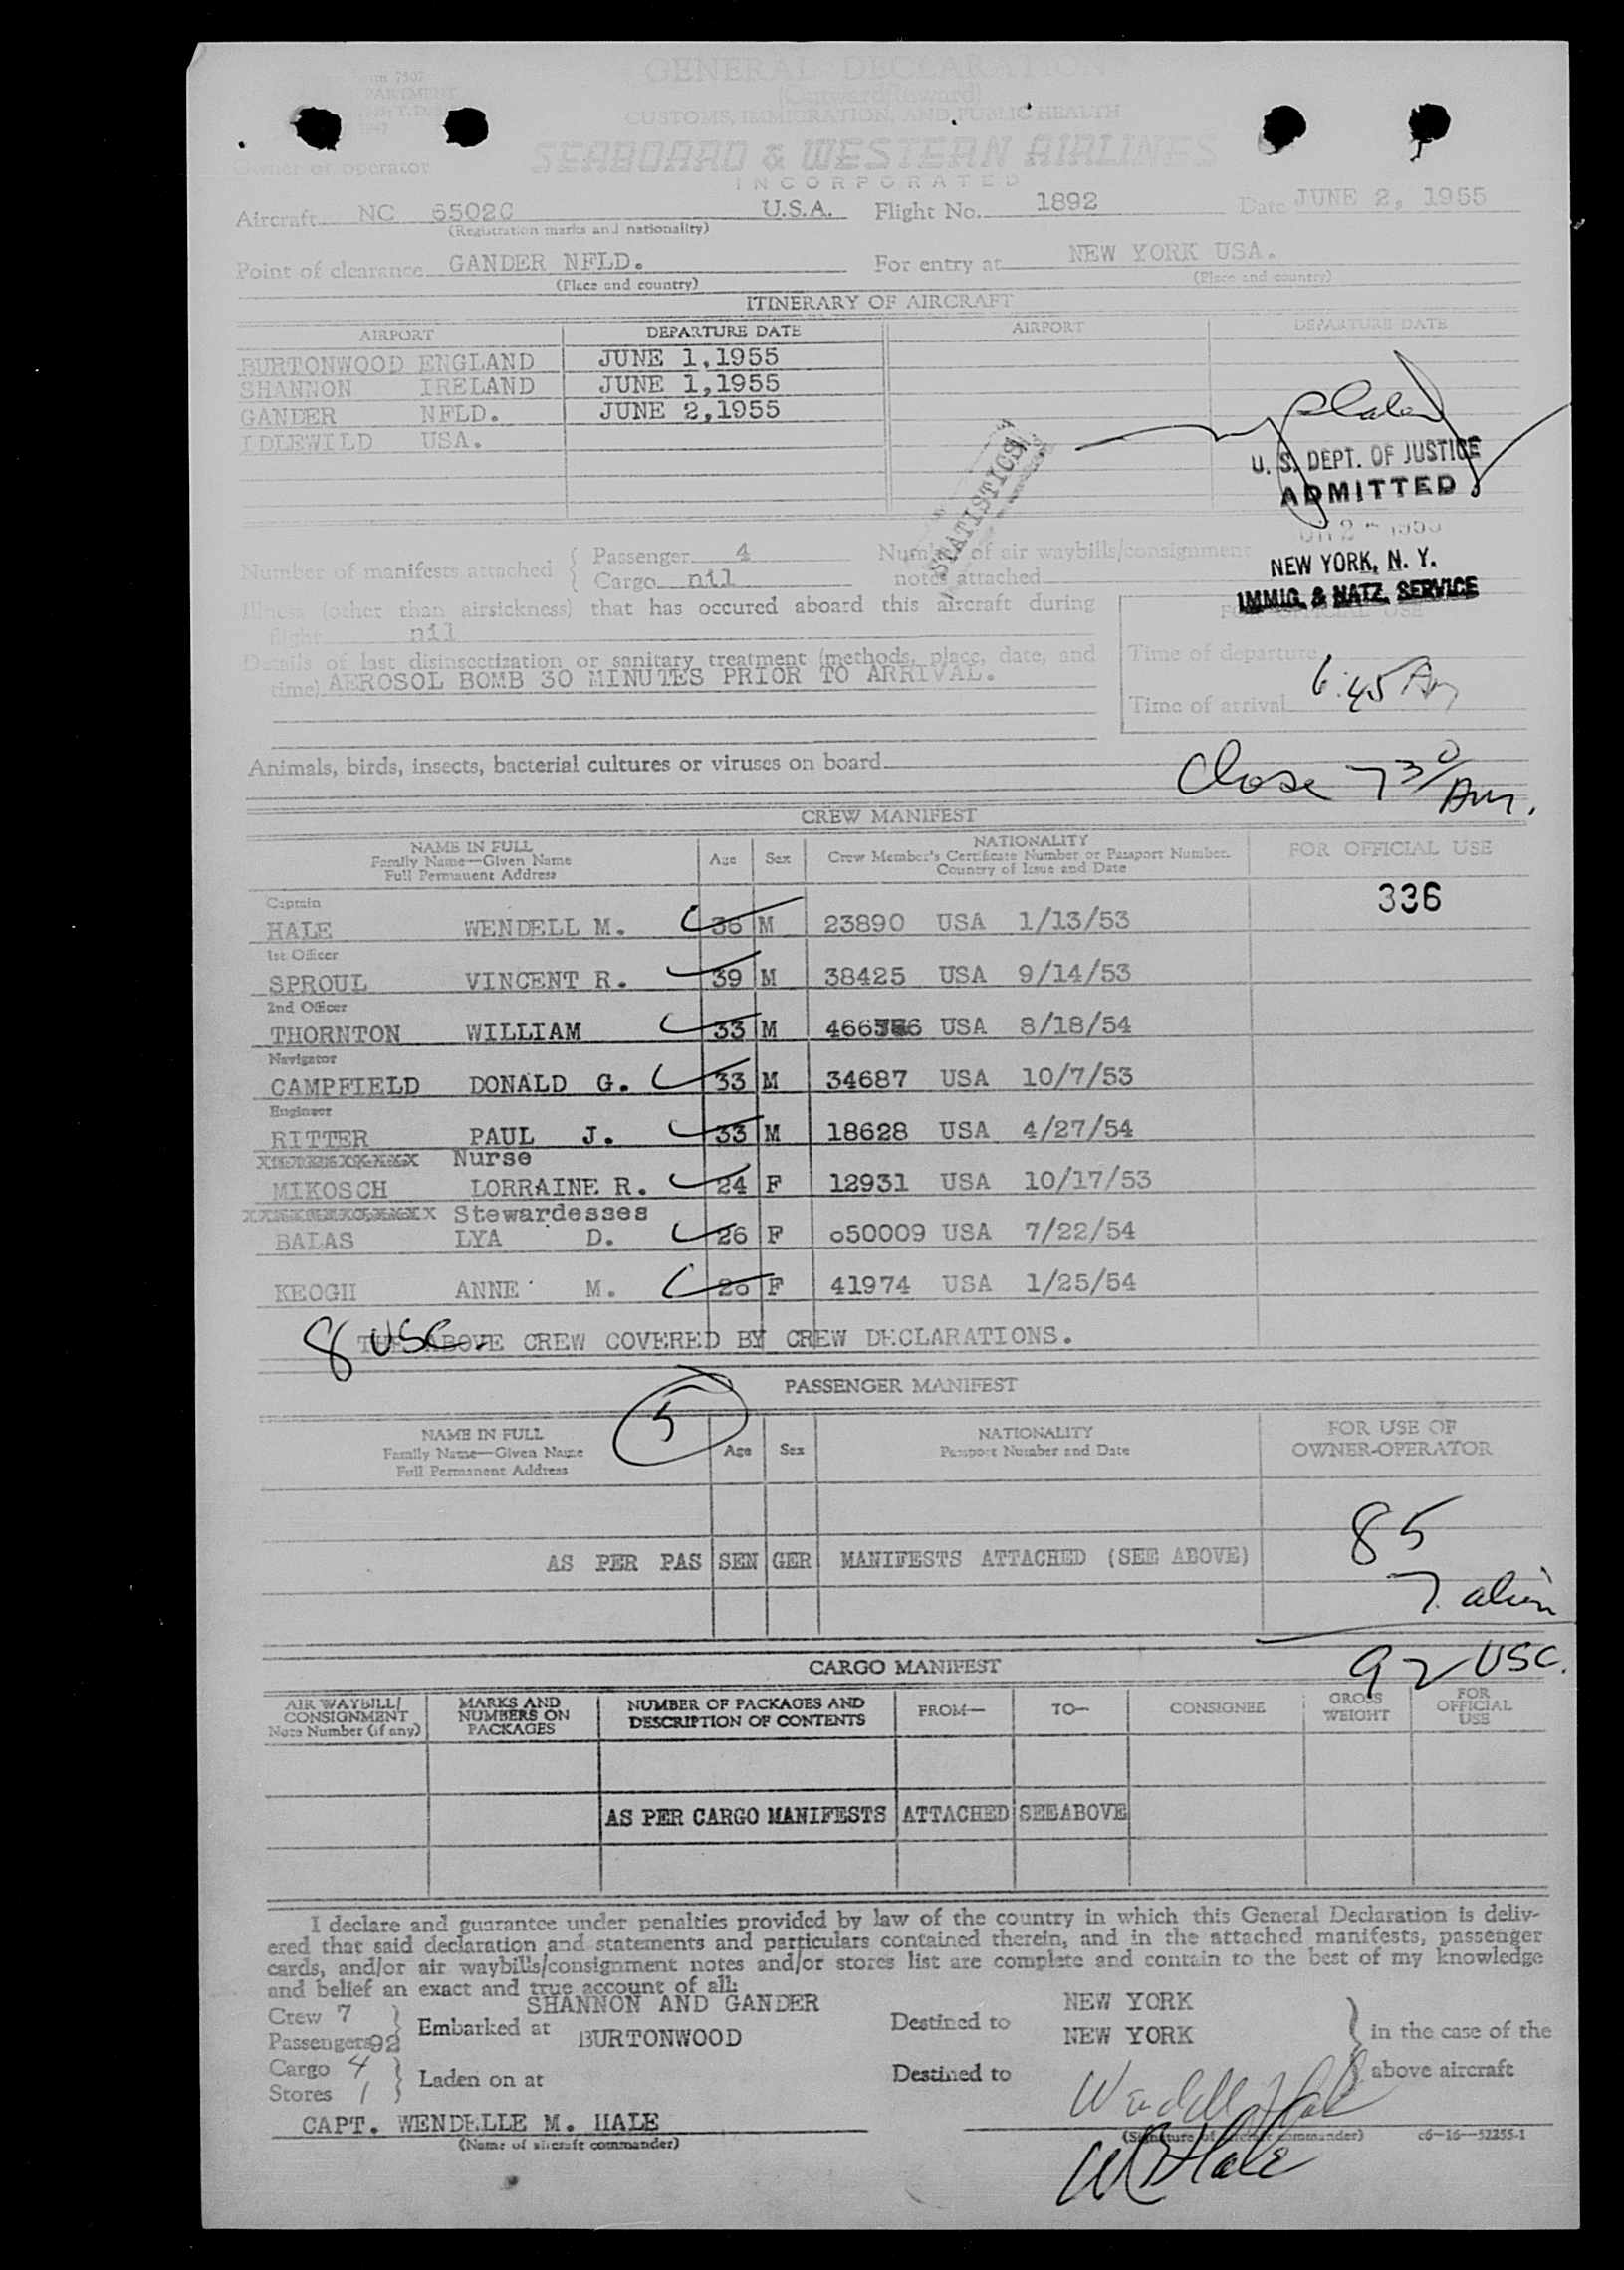 GENERAL DECLARATION
(Outward/Inward)
CUSTOMS, IMMIGRATION, AND PUBLIC HEALTH
SEABOARD & WESTERN AIRLINES
INCORPORATED
Owner or operator
Aircraft NC 6502C U.S.A. Flight No. 1892 Date JUNE 2, 1955
(Registration marks and nationality)
Point of clearance GANDER NFLD. For entry at NEW YORK USA.
(Place and country) (Place and country)
ITINERARY OF AIRCRAFT
AIRPORT DEPARTURE DATE AIRPORT DEPARTURE DATE
BURTONWOOD ENGLAND JUNE 1,1955
SHANNON IRELAND JUNE 1,1955
GANDER NFLD. JUNE 2,1955
IDLEWILD USA.
STATISTICS
U. S. DEPT. OF JUSTICE
ADMITTED
NEW YORK, N. Y.
IMMIG. & NATZ. SERVICE
Number of manifests attached { Passenger 4 Number of air waybills/consignment
Cargo nil notes attached
Illness (other than airsickness) that has occured aboard this aircraft during
flight nil
FOR OFFICIAL USE
Details of last disinsectization or sanitary treatment (methods, place, date, and
time) AEROSOL BOMB 30 MINUTES PRIOR TO ARRIVAL.
Time of departure
Time of arrival 6:45 Am
Animals, birds, insects, bacterial cultures or viruses on board
Close 7 30/Am.
CREW MANIFEST
NAME IN FULL
Family Name—Given Name
Full Permanent Address
Age Sex
NATIONALITY
Crew Member's Certificate Number or Passport Number.
Country of Issue and Date
FOR OFFICIAL USE
336
Captain
HALE WENDELL M. 36 M 23890 USA 1/13/53
1st Officer
SPROUL VINCENT R. 39 M 38425 USA 9/14/53
2nd Officer
THORNTON WILLIAM 33 M USA 8/18/54
Navigator
CAMPFIELD DONALD G. 33 M 34687 USA 10/7/53
Engineer
RITTER PAUL J. 33 M 18628 USA 4/27/54
Nurse
MIKOSCH LORRAINE R. 24 F 12931 USA 10/17/53
Stewardesses
BALAS LYA D. 26 F o50009 USA 7/22/54
KEOGH ANNE M. 26 F 41974 USA 1/25/54
8 USC.
THE ABOVE CREW COVERED BY CREW DECLARATIONS.
PASSENGER MANIFEST
5
NAME IN FULL
Family Name—Given Name
Full Permanent Address
Age Sex
NATIONALITY
Passport Number and Date
FOR USE OF
OWNER-OPERATOR
AS PER PAS SEN GER MANIFESTS ATTACHED (SEE ABOVE)
85
7 alien
92 USC.
CARGO MANIFEST
AIR WAYBILL/
CONSIGNMENT
Note Number (if any)
MARKS AND
NUMBERS ON
PACKAGES
NUMBER OF PACKAGES AND
DESCRIPTION OF CONTENTS
FROM—
TO—
CONSIGNEE
GROSS
WEIGHT
FOR
OFFICIAL
USE
AS PER CARGO MANIFESTS ATTACHED SEEABOVE
I declare and guarantee under penalties provided by law of the country in which this General Declaration is deliv-
ered that said declaration and statements and particulars contained therein, and in the attached manifests, passenger
cards, and/or air waybills/consignment notes and/or stores list are complete and contain to the best of my knowledge
and belief an exact and true account of all:
Crew 7 } Embarked at SHANNON AND GANDER Destined to NEW YORK } in the case of the
Passengers 92 BURTONWOOD NEW YORK
Cargo 4 } Laden on at Destined to above aircraft
Stores 1
CAPT. WENDELLE M. HALE Wendell Hale
(Name of aircraft commander) (Signature of aircraft commander) c6—16—52255-1